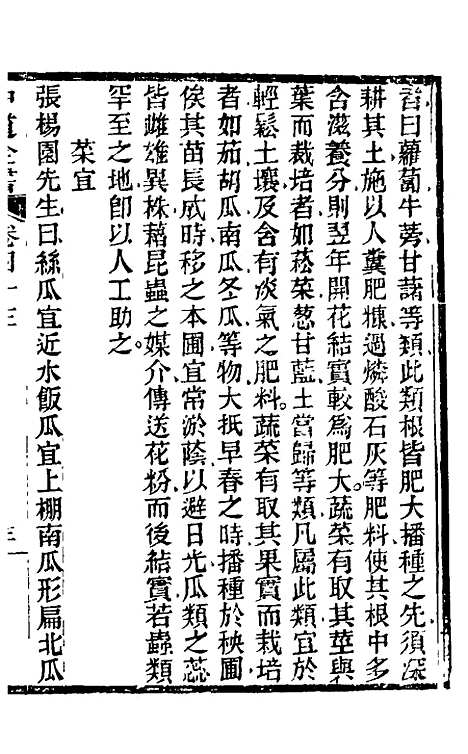 者曰蘿蔔牛蒡甘藷等類此類根皆肥大播種之先須深
耕其土施以人糞肥糠過燐酸石灰等肥料使其根中多
含滋養分則翌年開花結實較爲肥大蔬菜有取其莖與
葉而栽培者如菘菜葱甘藍土當歸等類凡屬此類宜於
輕鬆土壤及含有淡氣之肥料。蔬菜有取其果實而栽培
者如茄胡瓜南瓜冬瓜等物大抵早春之時播種於秧圃
俟其苗長成時移之本圃宜常淤蔭以避日光瓜類之蕊
皆雌雄異株藉昆蟲之媒介傳送花粉而後結實若蟲類
罕至之地卽以人工助之。
菜宜
張楊園先生曰絲瓜宜近水飯瓜宜上棚南瓜形扁北瓜
全書
卷四十三
三